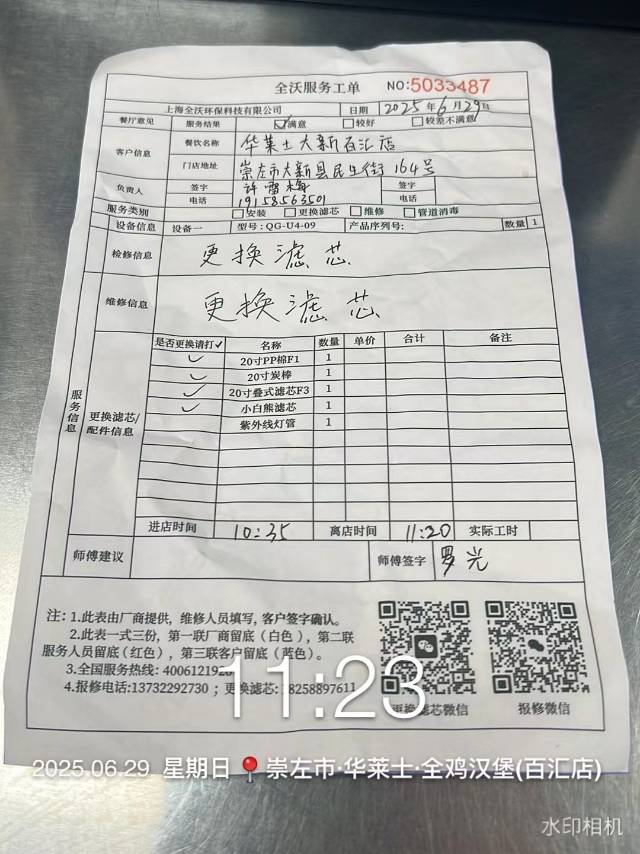 全沃服务工单 NO:5033487
上海全沃环保科技有限公司 日期 2025年6月29日
餐厅意见 服务结果 ☑满意 □较好 □较差不满意
客户信息 餐饮名称 华莱士大新百汇店
门店地址 崇左市大新县民生街164号
负责人 签字 许雪梅 签字
电话 19158563501 电话
服务类别 □安装 □更换滤芯 □维修 □管道消毒
设备信息 设备一 型号:QG-U4-09 产品序列号: 数量 1
检修信息 更换滤芯
维修信息 更换滤芯
服务信息
更换滤芯/配件信息
是否更换请打✓ 名称 数量 单价 合计 备注
✓ 20寸PP棉F1 1
✓ 20寸炭棒 1
✓ 20寸叠式滤芯F3 1
✓ 小白熊滤芯 1
紫外线灯管 1
进店时间 10:35 离店时间 11:20 实际工时
师傅建议 师傅签字 罗光
注:1.此表由厂商提供，维修人员填写,客户签字确认。
2.此表一式三份，第一联厂商留底(白色)，第二联
服务人员留底(红色)，第三联客户留底(蓝色)。
3.全国服务热线:
4.报修电话:13732292730；更换滤芯:18258897611
更换滤芯微信 报修微信
11:23
2025.06.29 星期日 崇左市·华莱士·全鸡汉堡(百汇店)
水印相机